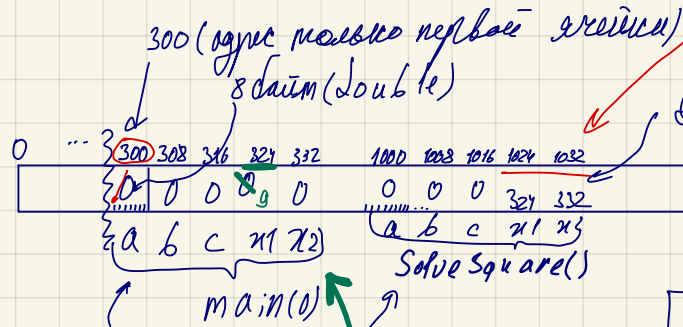 300 (адрес только первой ячейки)
8 байт (double)
0 ... 300 308 316 324 332 1000 1008 1016 1024 1032
0 0 0 0 9 0 0 0 0 324 332
a b c x1 x2 a b c x1 x2
SolveSquare()
main()